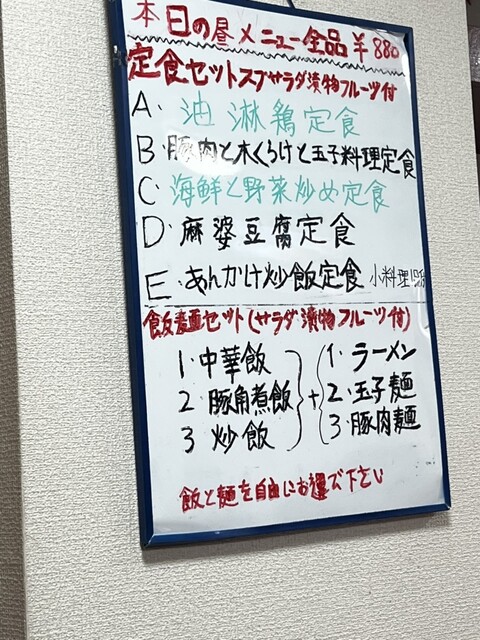 本日の昼メニュー全品¥880
定食セットスプサラダ漬物フルーツ付
A. 油淋鶏定食
B. 豚肉と木くらけと玉子料理定食
C. 海鮮と野菜炒め定食
D. 麻婆豆腐定食
E. あんかけ炒飯定食 小料理1品付
飯麺セット(サラダ漬物フルーツ付)
1. 中華飯
2. 豚角煮飯
3 炒飯
+
1. ラーメン
2. 玉子麺
3. 豚肉麺
飯と麺を自由にお選で下さい